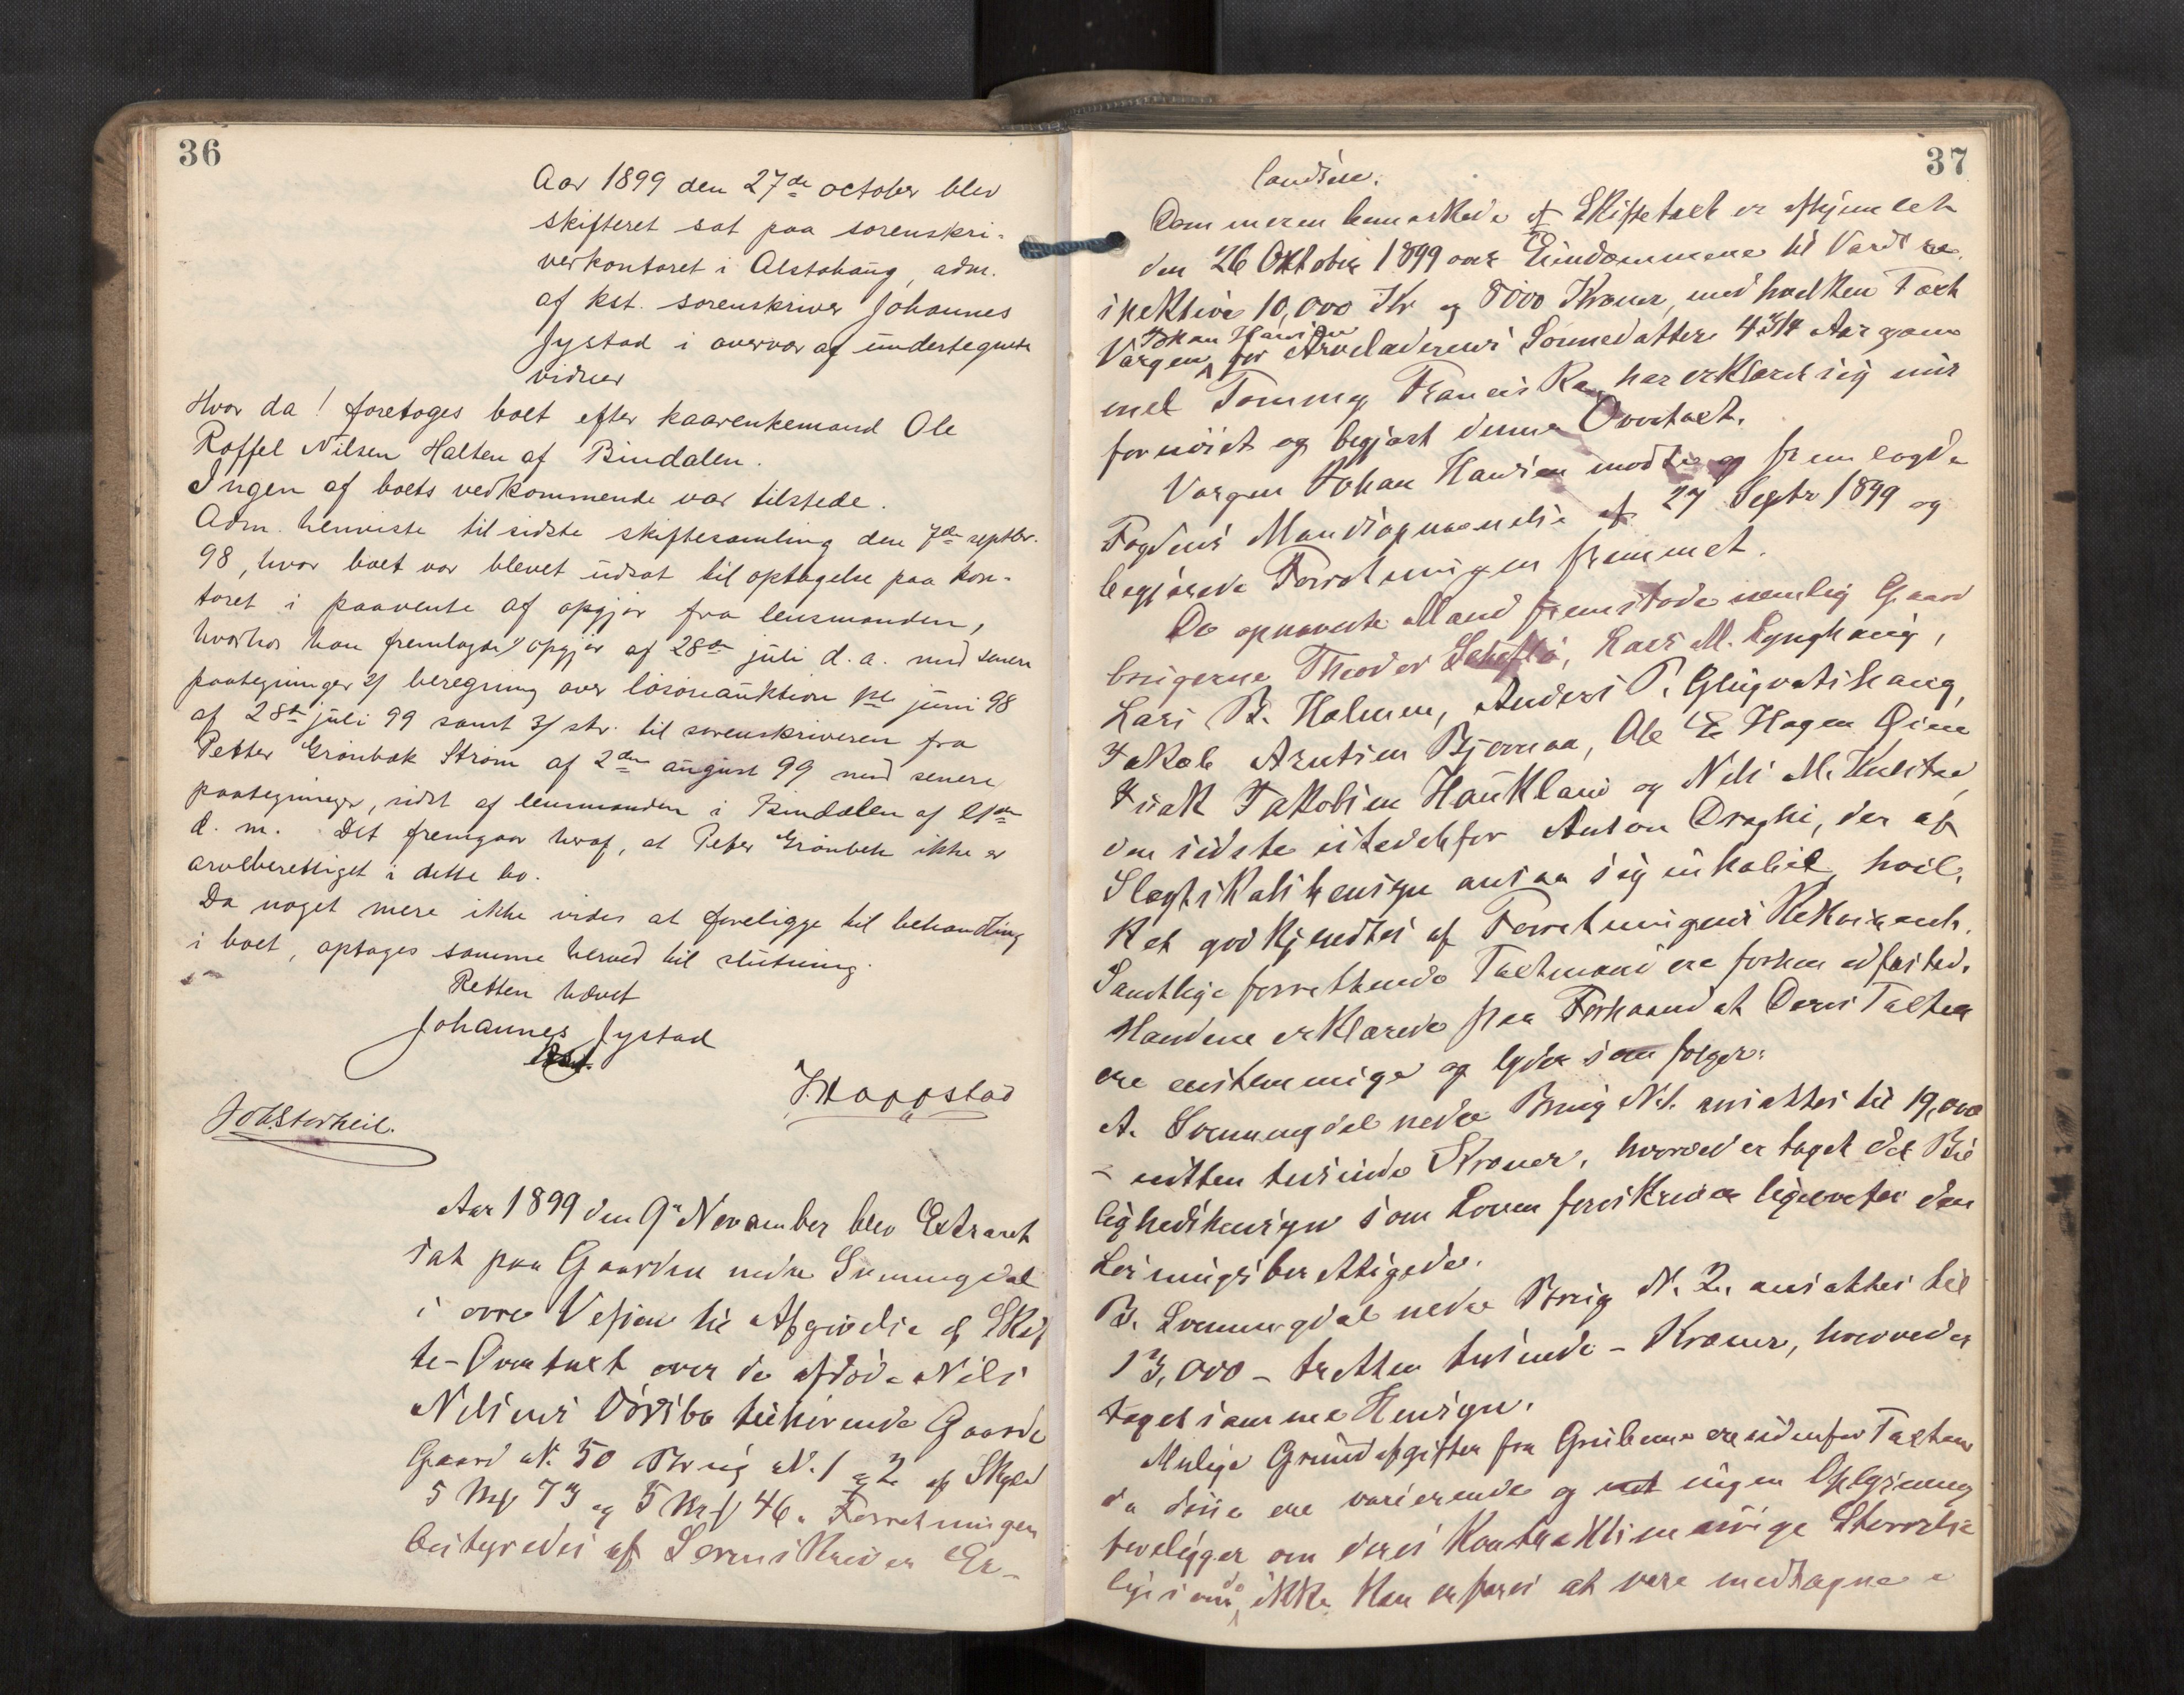 36
Aar 1899 den 27de october blev
skifteret sat paa sorenskri-
verkontoret i Alstahaug, adm.
af kst. sorenskriver Johannes
Jystad i overvær af undertegnede
vidner
Hvor da! foretoges boet efter kaarenkemand Ole
Roffel Nilsen Halten af Bindalen.
Ingen af boets vedkommende var tilstede.
Adm. henviste til sidste skiftesamling den 7de septbr.
98, hvor boet var blevet udsat til optagelse paa kon-
toret i paavente af opgjør fra lensmanden,
hvorhos han fremlagde 1/ opgjør af 28de juli d. a. med senere
paategninger 2/ beregning over løsøreauktion 1ste juni 98
af 28de juli 99 samt 3/ skr. til sorenskriveren fra
Petter Grønbæk Strøm af 2den august 99 med senere
paategninger, sidst af lensmanden i Bindalen af
d. m. Det fremgaar heraf, at Peter Grønbek ikke er
arveberettiget i dette bo.
Da noget mere ikke vides at foreligge til behandling
i boet, optages samme herved til slutning.
Retten hævet
Johannes Jystad
kst.
J. Hoppstad
Joh. Storheil.
Aar 1899 den 9de November blev Extraret
sat paa Gaarden nedre Svenningdal
i øvre Vefsen til Afgivelse af Skif
te-Overtaxt over de afdøde Nils
Nilsens Dødsbo tilhørende Gaarde
Gaard N. 50 Brug N. 1 & 2 af Skyld
5 Mrk 73 og 5 Mrk 46. Forretningen
bestyredes af Sorenskriver Er-
37
landsen.
Dommeren bemærkede at Skiftetaxt er afhjemlet
den 26 Oktober 1899 over Eiendommene til Værdi re-
spektive 10,000 Kr og 8000 Kroner, med hvilken Taxt
Johan Hansen
Værgen for Arveladerens Sønnedatter 4 3/4 Aar gam
mel Tommy Franciska har erklæret sig mis
fornøiet og begjært denne Overtaxt.
Værgen Johan Hansen mødte og fremlagde
Fogdens Mandsopnævnelse af 27 Septr 1899 og
begjærede Forretningen fremmet.
De opnævnte Mænd fremstode nemlig Gaard
brugerne Theodor, Lars M. Lynghaug,
Lars B. Holmen, Anders P. Glugvatshaug,
Jakob Arntsen Bjørnaa, Ole E Hagen
Isak Jakobsen Haukland og Nils M.
den sidste istedetfor Anton, der af
Slegtskabshensyn ansaa sig inhabil, hvil-
ket godkjendtes af Forretningens Rekvirent.
Samtlige forrettende Taxtmænd ere forhen edfæstede.
Mændene erklærede paa Forhaand at Deres Taxter
ere enstemmige og lyder som følger:
A. Svenningdal nedre Brug N.1. ansattes til 19,000
- nitten tusinde Kroner, hvorved er taget det Bil
lighedshensyn som Loven foreskriver ligeoverfor den
Løsningsberettigede.
B. Svenningdal nedre Brug N. 2. ansattes til
13,000 - tretten tusinde - Kroner, hvorved er
taget samme Hensyn.
Mulige Grundafgifter fra Gruberne ere udenfor Taxten
da disse ere varierende og ingen Oplysning
foreligger om deres Kontraktsmæssige Størrelse
ligesom de ikke kan erfares at være medtagne i